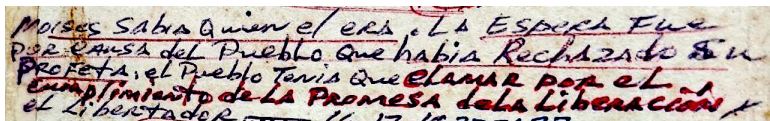 Moises Sabia Quien el era. La Espera Fue
Por causa del Pueblo Que habia Rechazado Su
Profeta, el Pueblo Tenia Que clamar por el
cumplimiento de la Promesa de la Liberación y
el Libertador